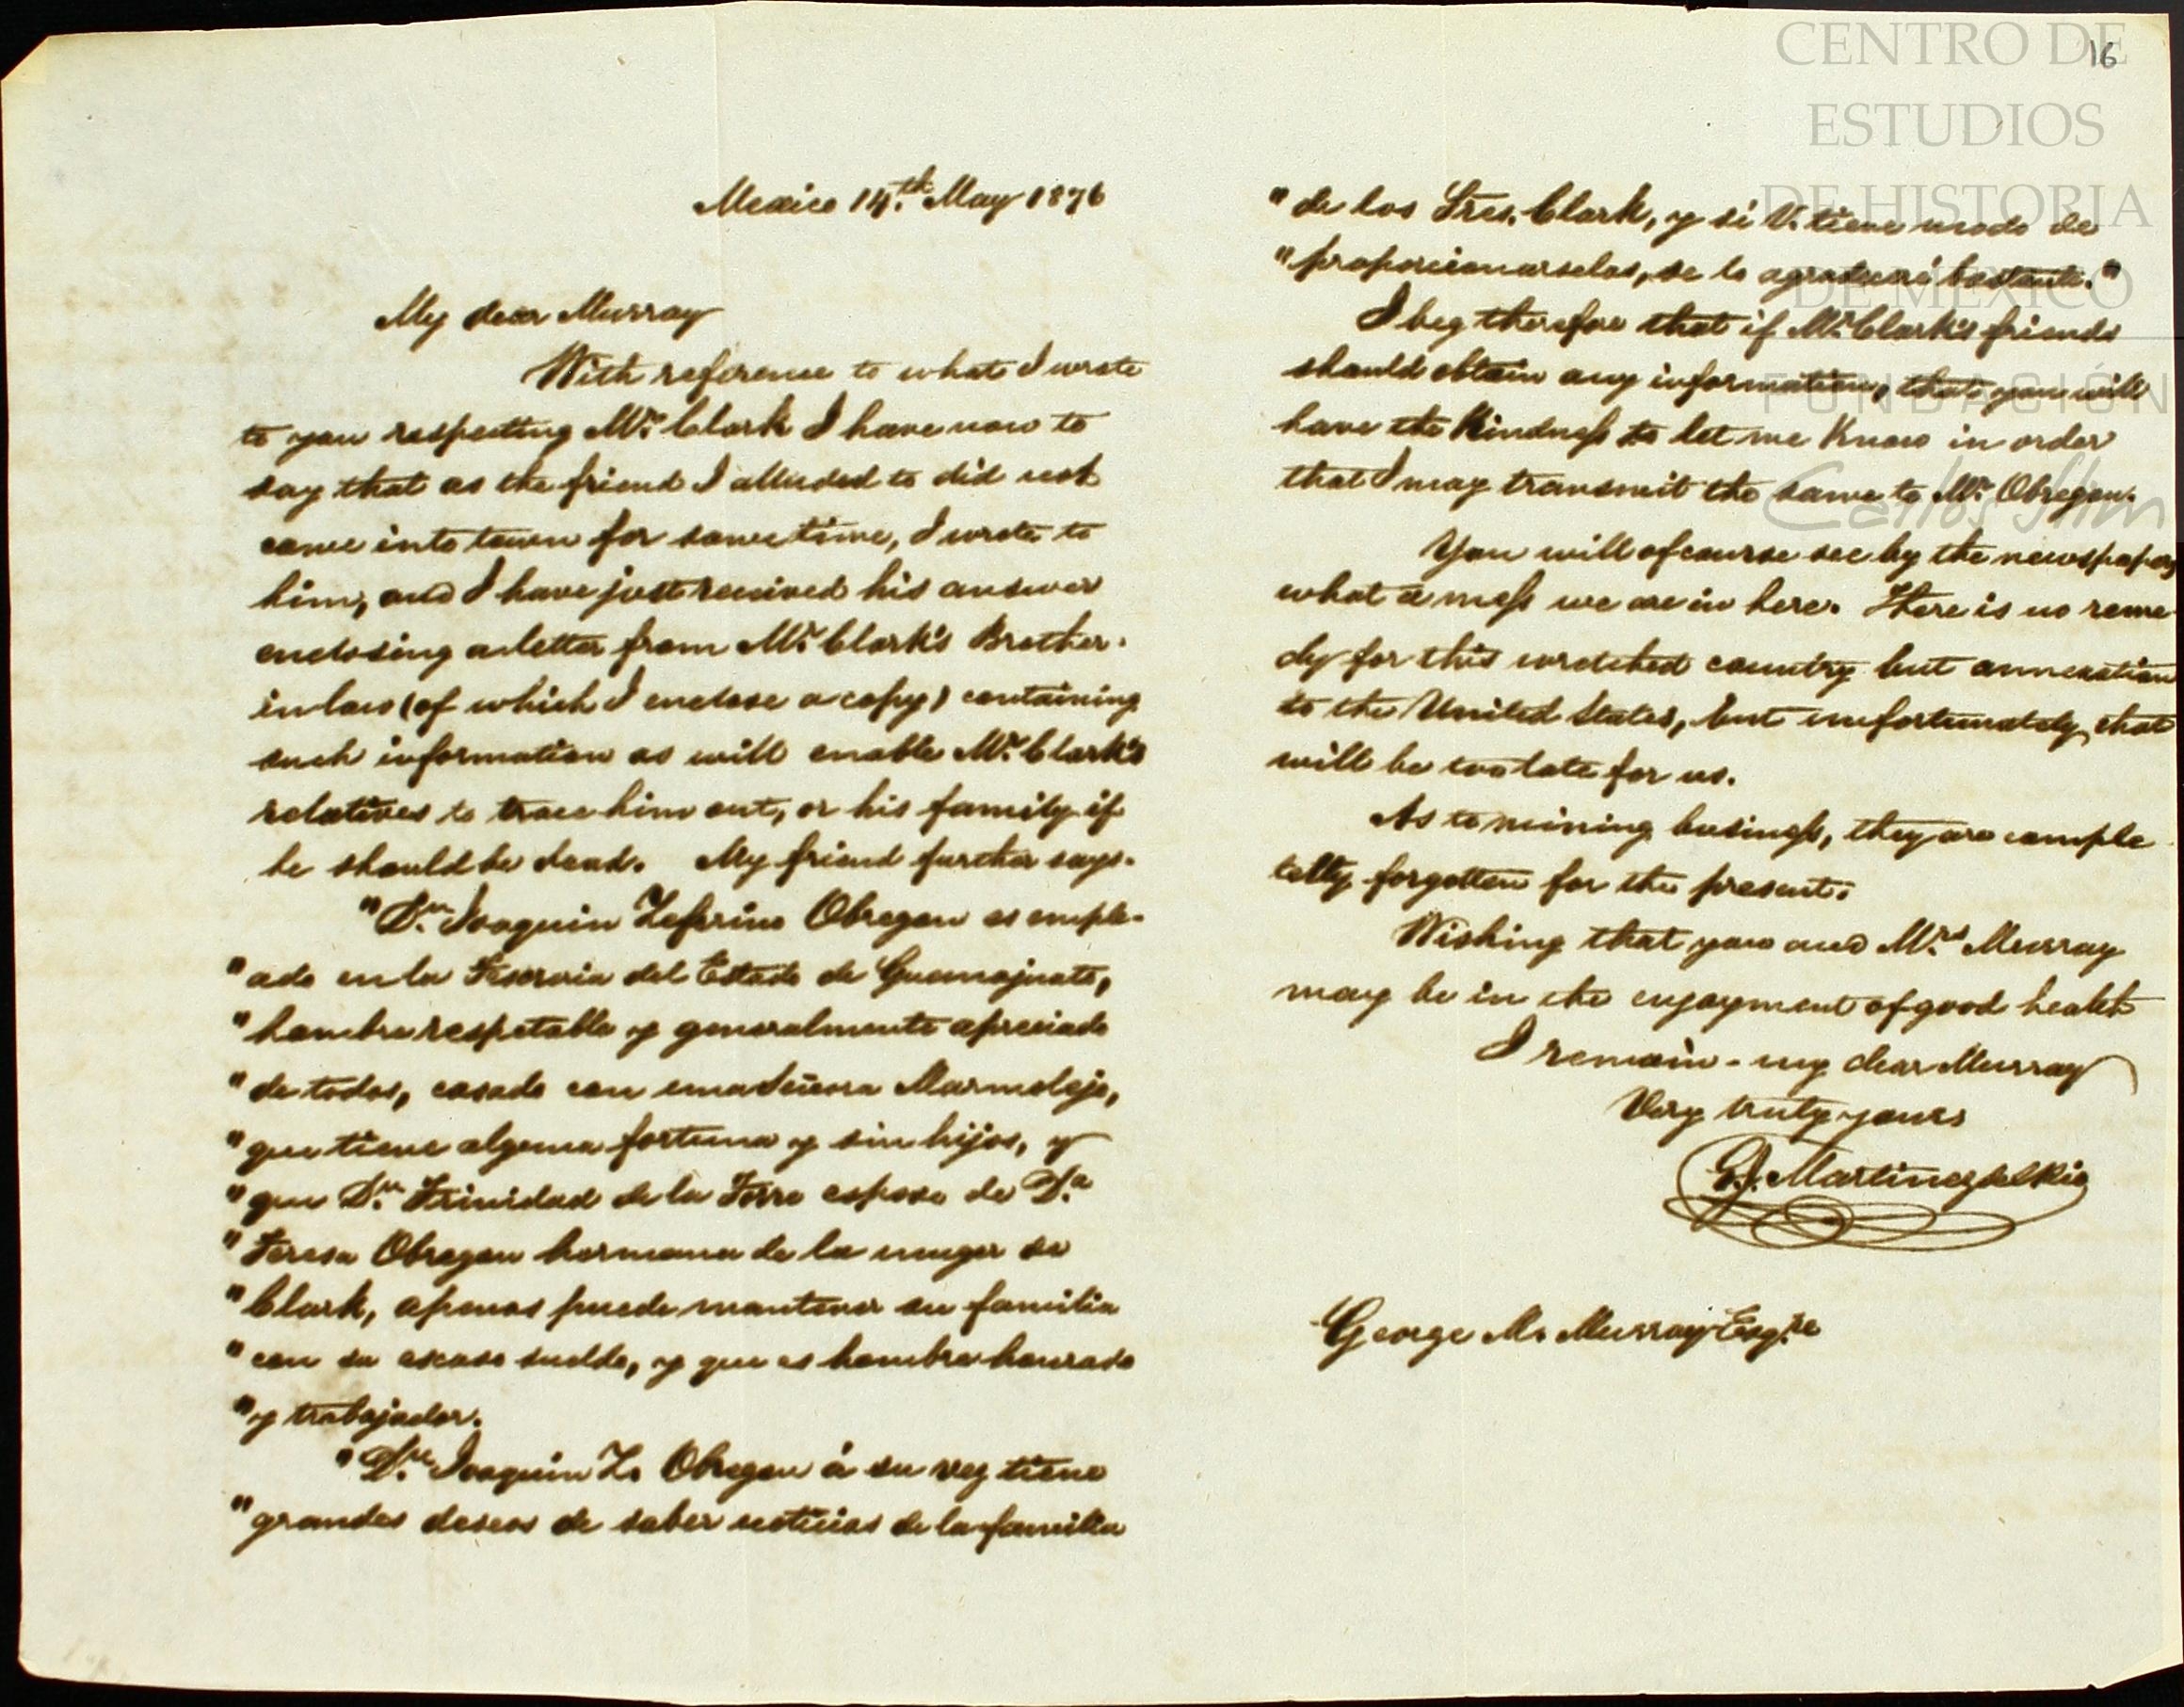 Mexico 14th. May 1876
My dear Murray
With reference to what I wrote
to you respecting Mr. Clark I have now to
say that as the friend I alluded to did not
come into town for some time, I wrote to
him, and I have just received his answer
enclosing a letter from Mr. Clark's Brother.
in law (of which I enclose a copy) containing
such information as will enable Mr. Clark's
relatives to trace him out, or his family if
he should be dead. My friend further says.
"Dn. Joaquin Zeferino Obregon es emple-
"ado en la Tesoreria del Estado de Guanajuato,
"hombre respetable y generalmente apreciado
"de todos, casado con una Señora Marmolejo,
"que tiene alguna fortuna y sin hijos, y
"que Dn. Trinidad de la Torre esposo de Da.
"Teresa Obregon hermana de la muger de
"Clark, apenas puede mantener su familia
"con su escaso sueldo, y que es hombre honrado
"y trabajador.
"Dn. Joaquin Z. Obregon á su vez tiene
"grandes deseos de saber noticias de la familia
16
"de los Sres. Clark, y si V. tiene modo de
"proporcionarselas, se lo agradeceré bastante."
I beg therefore that if Mr. Clark's friends
should obtain any information, that you will
have the Kindness to let me Know in order
that I may transmit the same to Mr. Obregon.
You will of course see by the newspapers
what a mess we are in here. There is no reme
dy for this wretched country but annexation
to the United States, but unfortunately that
will be too late for us.
As to mining business, they are comple
telly forgotten for the present.
Wishing that you and Mrs. Murray
may be in the enjoyment of good health
I remain - my dear Murray
Very truly yours
Martinez del Rio
George M. Murray Esqre.
CENTRO DE
ESTUDIOS
DE HISTORIA
DE MÉXICO
FUNDACIÓN
Carlos Slim